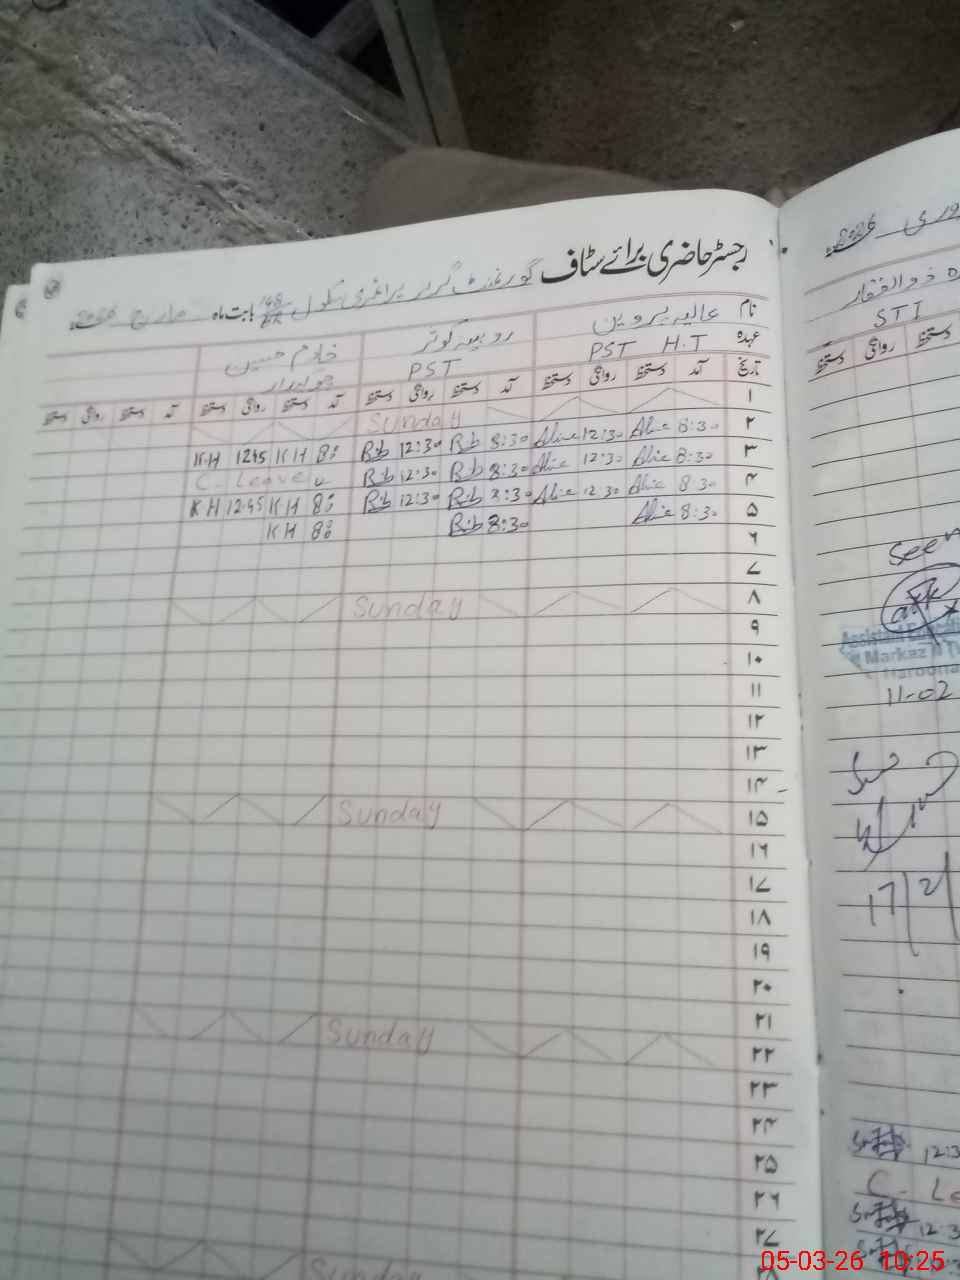 رجسٹر حاضری برائے سٹاف گورنمنٹ گرلز پرائمری سکول بابت ماہ مارچ 2026ء
نام عالیہ پروین روبینہ کوثر خادم حسین
عہدہ PST H.T PST چوکیدار
تاریخ آمد دستخط روانگی دستخط آمد دستخط روانگی دستخط آمد دستخط روانگی دستخط آمد دستخط روانگی دستخط
۱ Sunday
۲ 8:30 Alia 12:30 Alia 8:30 Rub 12:30 Rub 8:00 KH 1245 KH
۳ 8:30 Alia 12:30 Alia 8:30 Rub 12:30 Rub C-Leave
۴ 8:30 Alia 12:30 Alia 8:30 Rub 12:30 Rub 8:00 KH 12:45 KH
۵ 8:30 Alia 8:30 Rub 8:00 KH
۶
۷
۸ Sunday
۹
۱۰
۱۱
۱۲
۱۳
۱۴
۱۵ Sunday
۱۶
۱۷
۱۸
۱۹
۲۰
۲۱
۲۲ Sunday
۲۳
۲۴
۲۵
۲۶
۲۷
۲۸
Sunday
2026ء
ذوالفقار
STI
دستخط روانگی دستخط
seen
Assistant
Markaz
11-02
17/2
12:3
C- Le
12:3
05-03-26 10:25